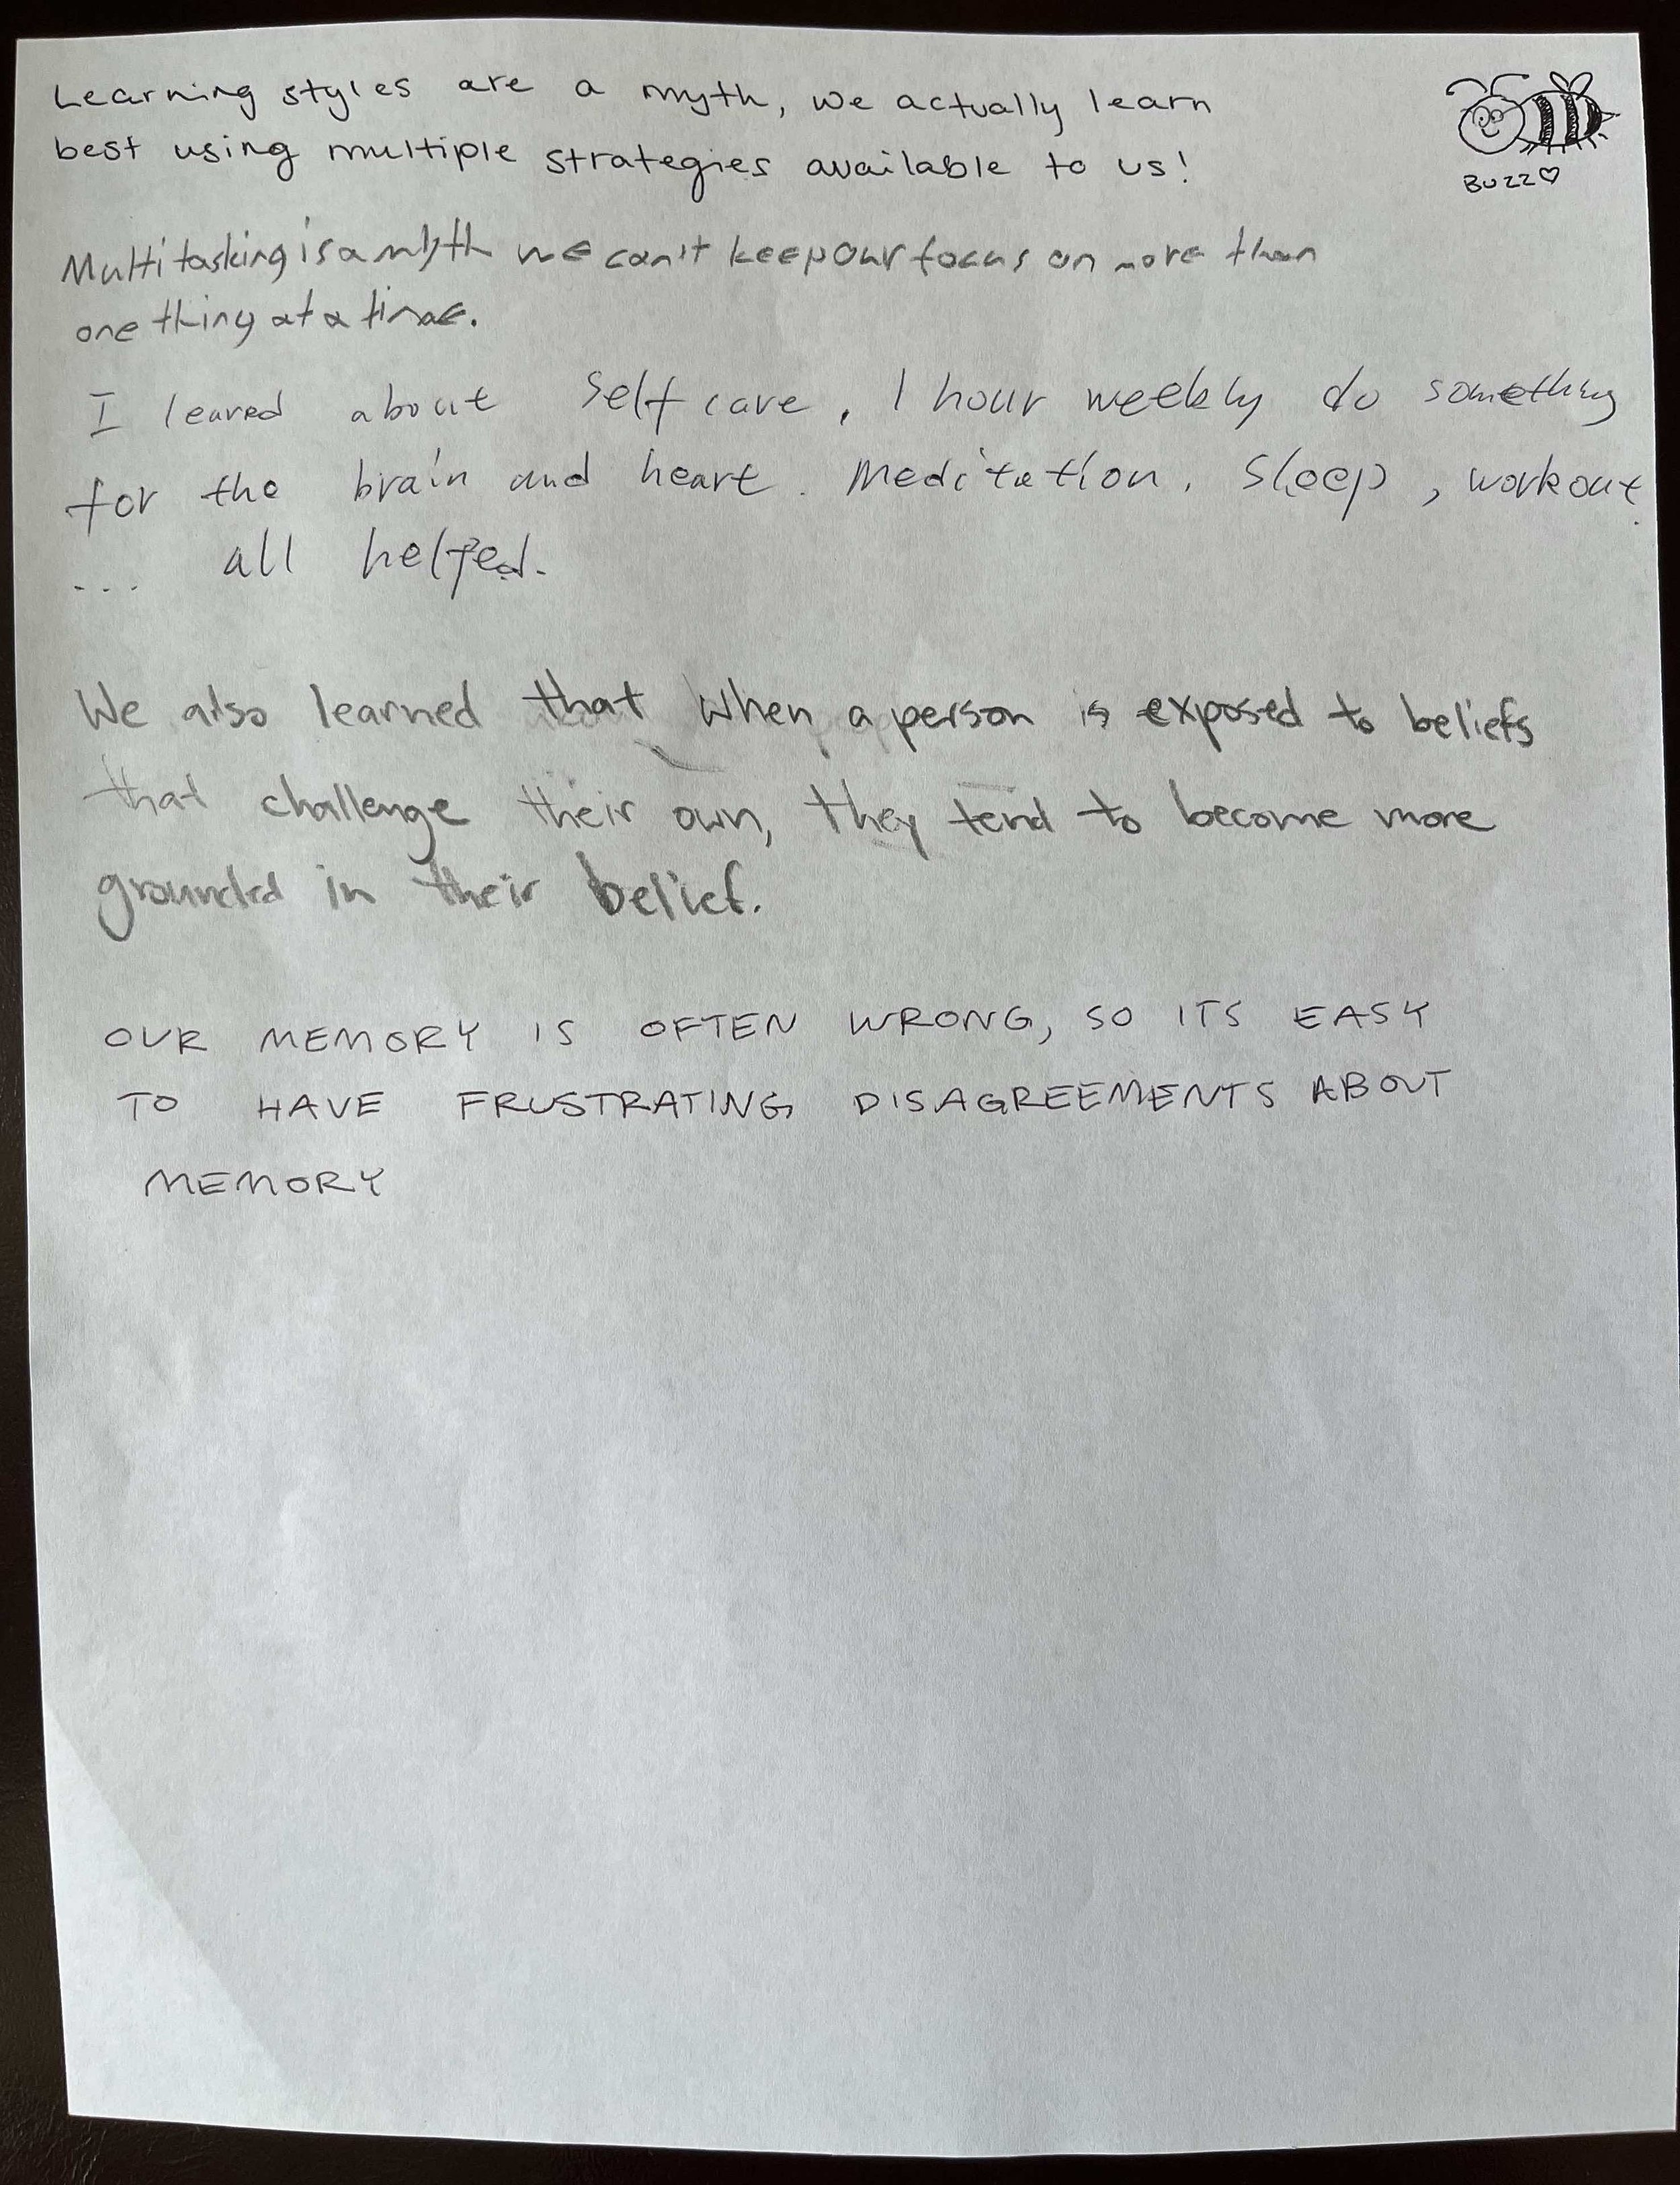 Learning styles are a myth, we actually learn
best using multiple strategies available to us!
BUZZ♡
Multitasking is a myth we can't keep our focus on more than
one thing at a time.
I leared about self care, 1 hour weekly do something
for the brain and heart. Meditation, Sleep, workout
... all helped.
We also learned that when a person is exposed to beliefs
that challenge their own, they tend to become more
grounded in their belief.
OUR MEMORY IS OFTEN WRONG, SO ITS EASY
TO HAVE FRUSTRATING DISAGREEMENTS ABOUT
MEMORY